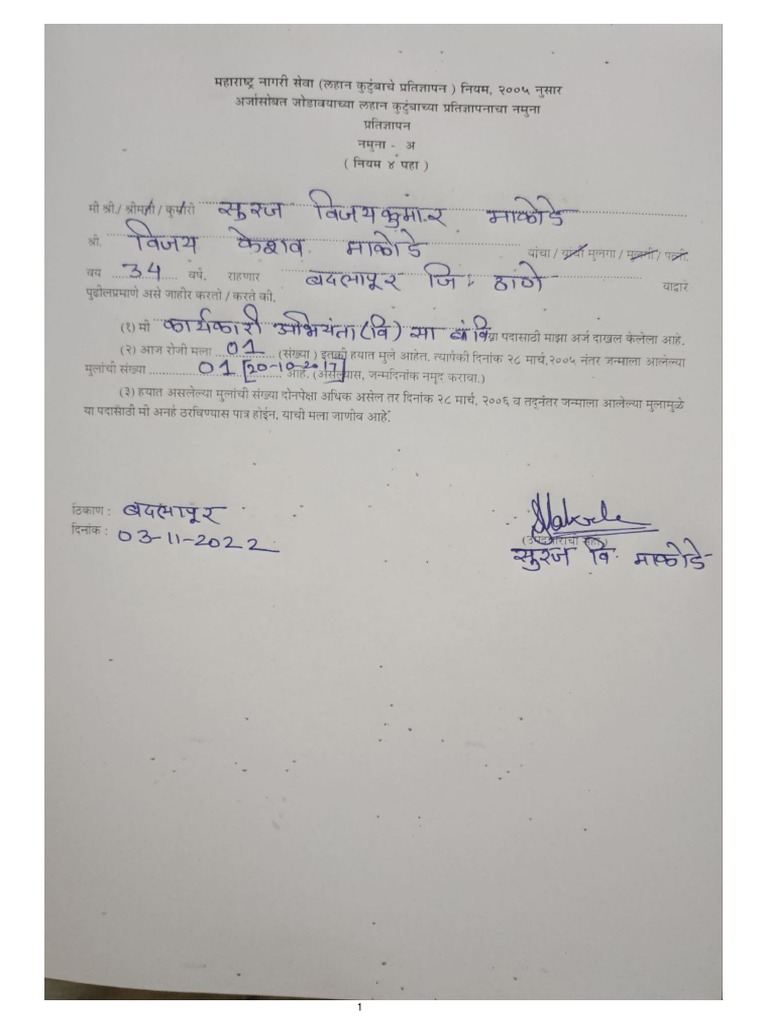 महाराष्ट्र नागरी सेवा (लहान कुटुंबाचे प्रतिज्ञापन ) नियम, २००५ नुसार
अर्जासोबत जोडावयाच्या लहान कुटुंबाच्या प्रतिज्ञापनाचा नमुना
प्रतिज्ञापन
नमुना - अ
( नियम ४ पहा )
मी श्री./ श्रीमती / कुमारी सुरज विजयकुमार माकोडे
श्री. विजय केशव माकोडे यांचा / यांची मुलगा / मुलगी / पत्नी.
वय 34 वर्ष. राहणार बदलापूर जि. ठाणे याद्वारे
पुढीलप्रमाणे असे जाहीर करतो / करते की,
(१) मी कार्यकारी अभियंता (वि) सा बां वि या पदासाठी माझा अर्ज दाखल केलेला आहे.
(२) आज रोजी मला 01 (संख्या ) इतकी हयात मुले आहेत. त्यापैकी दिनांक २८ मार्च,२००५ नंतर जन्माला आलेल्या
मुलांची संख्या 01 [20-10-2017] आहे. (असल्यास, जन्मदिनांक नमूद करावा.)
(३) हयात असलेल्या मुलांची संख्या दोनपेक्षा अधिक असेल तर दिनांक २८ मार्च, २००६ व तद्नंतर जन्माला आलेल्या मुलामुळे
या पदासाठी मी अनर्ह ठरविण्यास पात्र होईन, याची मला जाणीव आहे.
ठिकाण : बदलापूर
दिनांक : 03-11-2022
(उमेदवाराची सही)
सुरज वि. माकोडे
1